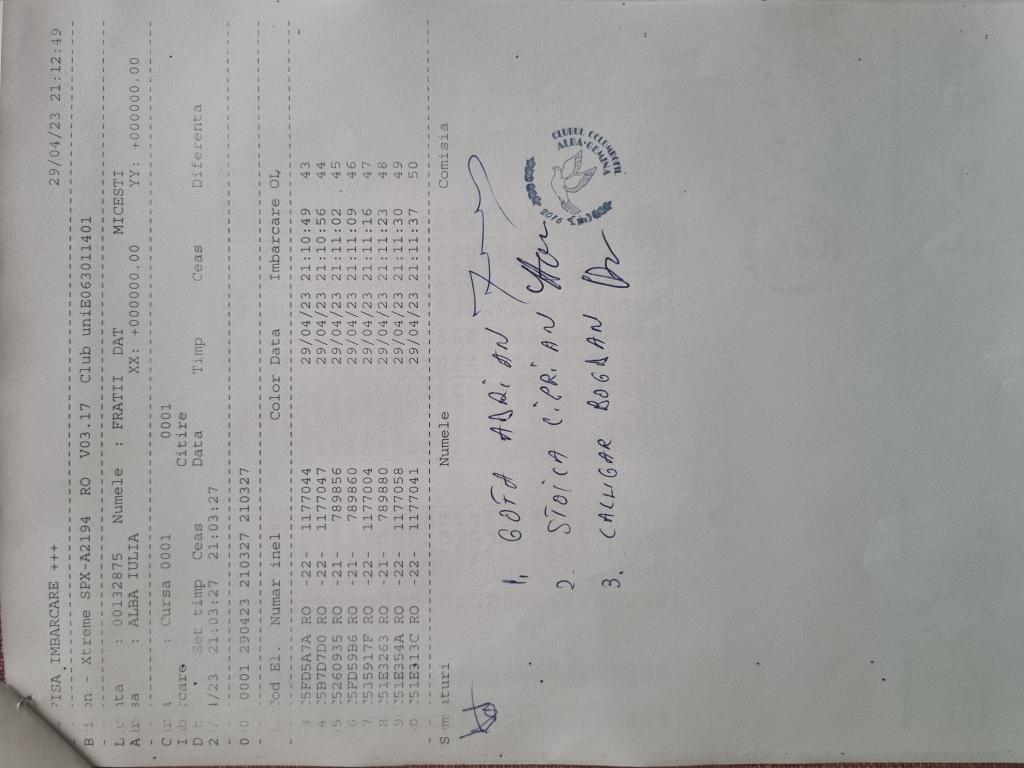 FISA IMBARCARE +++ 29/04/23 21:12:49
- Xtreme SPX-A2194 RO V03.17 Club uniE063011401
: 00132875 Numele : FRATII DAT MICESTI
: ALBA IULIA XX: +000000.00 YY: +000000.00
: Cursa 0001 0001
Citire
Set timp Ceas Data Timp Ceas Diferenta
/23 21:03:27 21:03:27
0001 290423 210327 210327 210327
Cod El. Numar inel Color Data Imbarcare OL,
3 25FD5A7A RO -22- 1177044 29/04/23 21:10:49 43
4 25B7D7D0 RO -22- 1177047 29/04/23 21:10:56 44
5 2526D935 RO -21- 789856 29/04/23 21:11:02 45
6 25FD59B6 RO -21- 789860 29/04/23 21:11:09 46
7 2535917F RO -22- 1177004 29/04/23 21:11:16 47
8 251E3263 RO -21- 789880 29/04/23 21:11:23 48
9 251E354A RO -22- 1177058 29/04/23 21:11:30 49
0 251E313C RO -22- 1177041 29/04/23 21:11:37 50
Semnaturi Numele Comisia
1, GOTA ADRIAN
2. STOICA CIPRIAN
3. CALUGAR BOGDAN
CLUBUL COLUMBOFIL
ALBA-GEMINA
2016